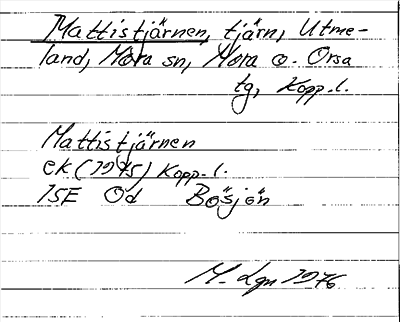 Mattistjärnen, tjärn, Utme-
land, Mora sn, Mora o. Orsa
tg, Kopp. l.
Mattistjärnen
ek (1975) Kopp. l.
15E Od Bösjön
M. Lgn 1976